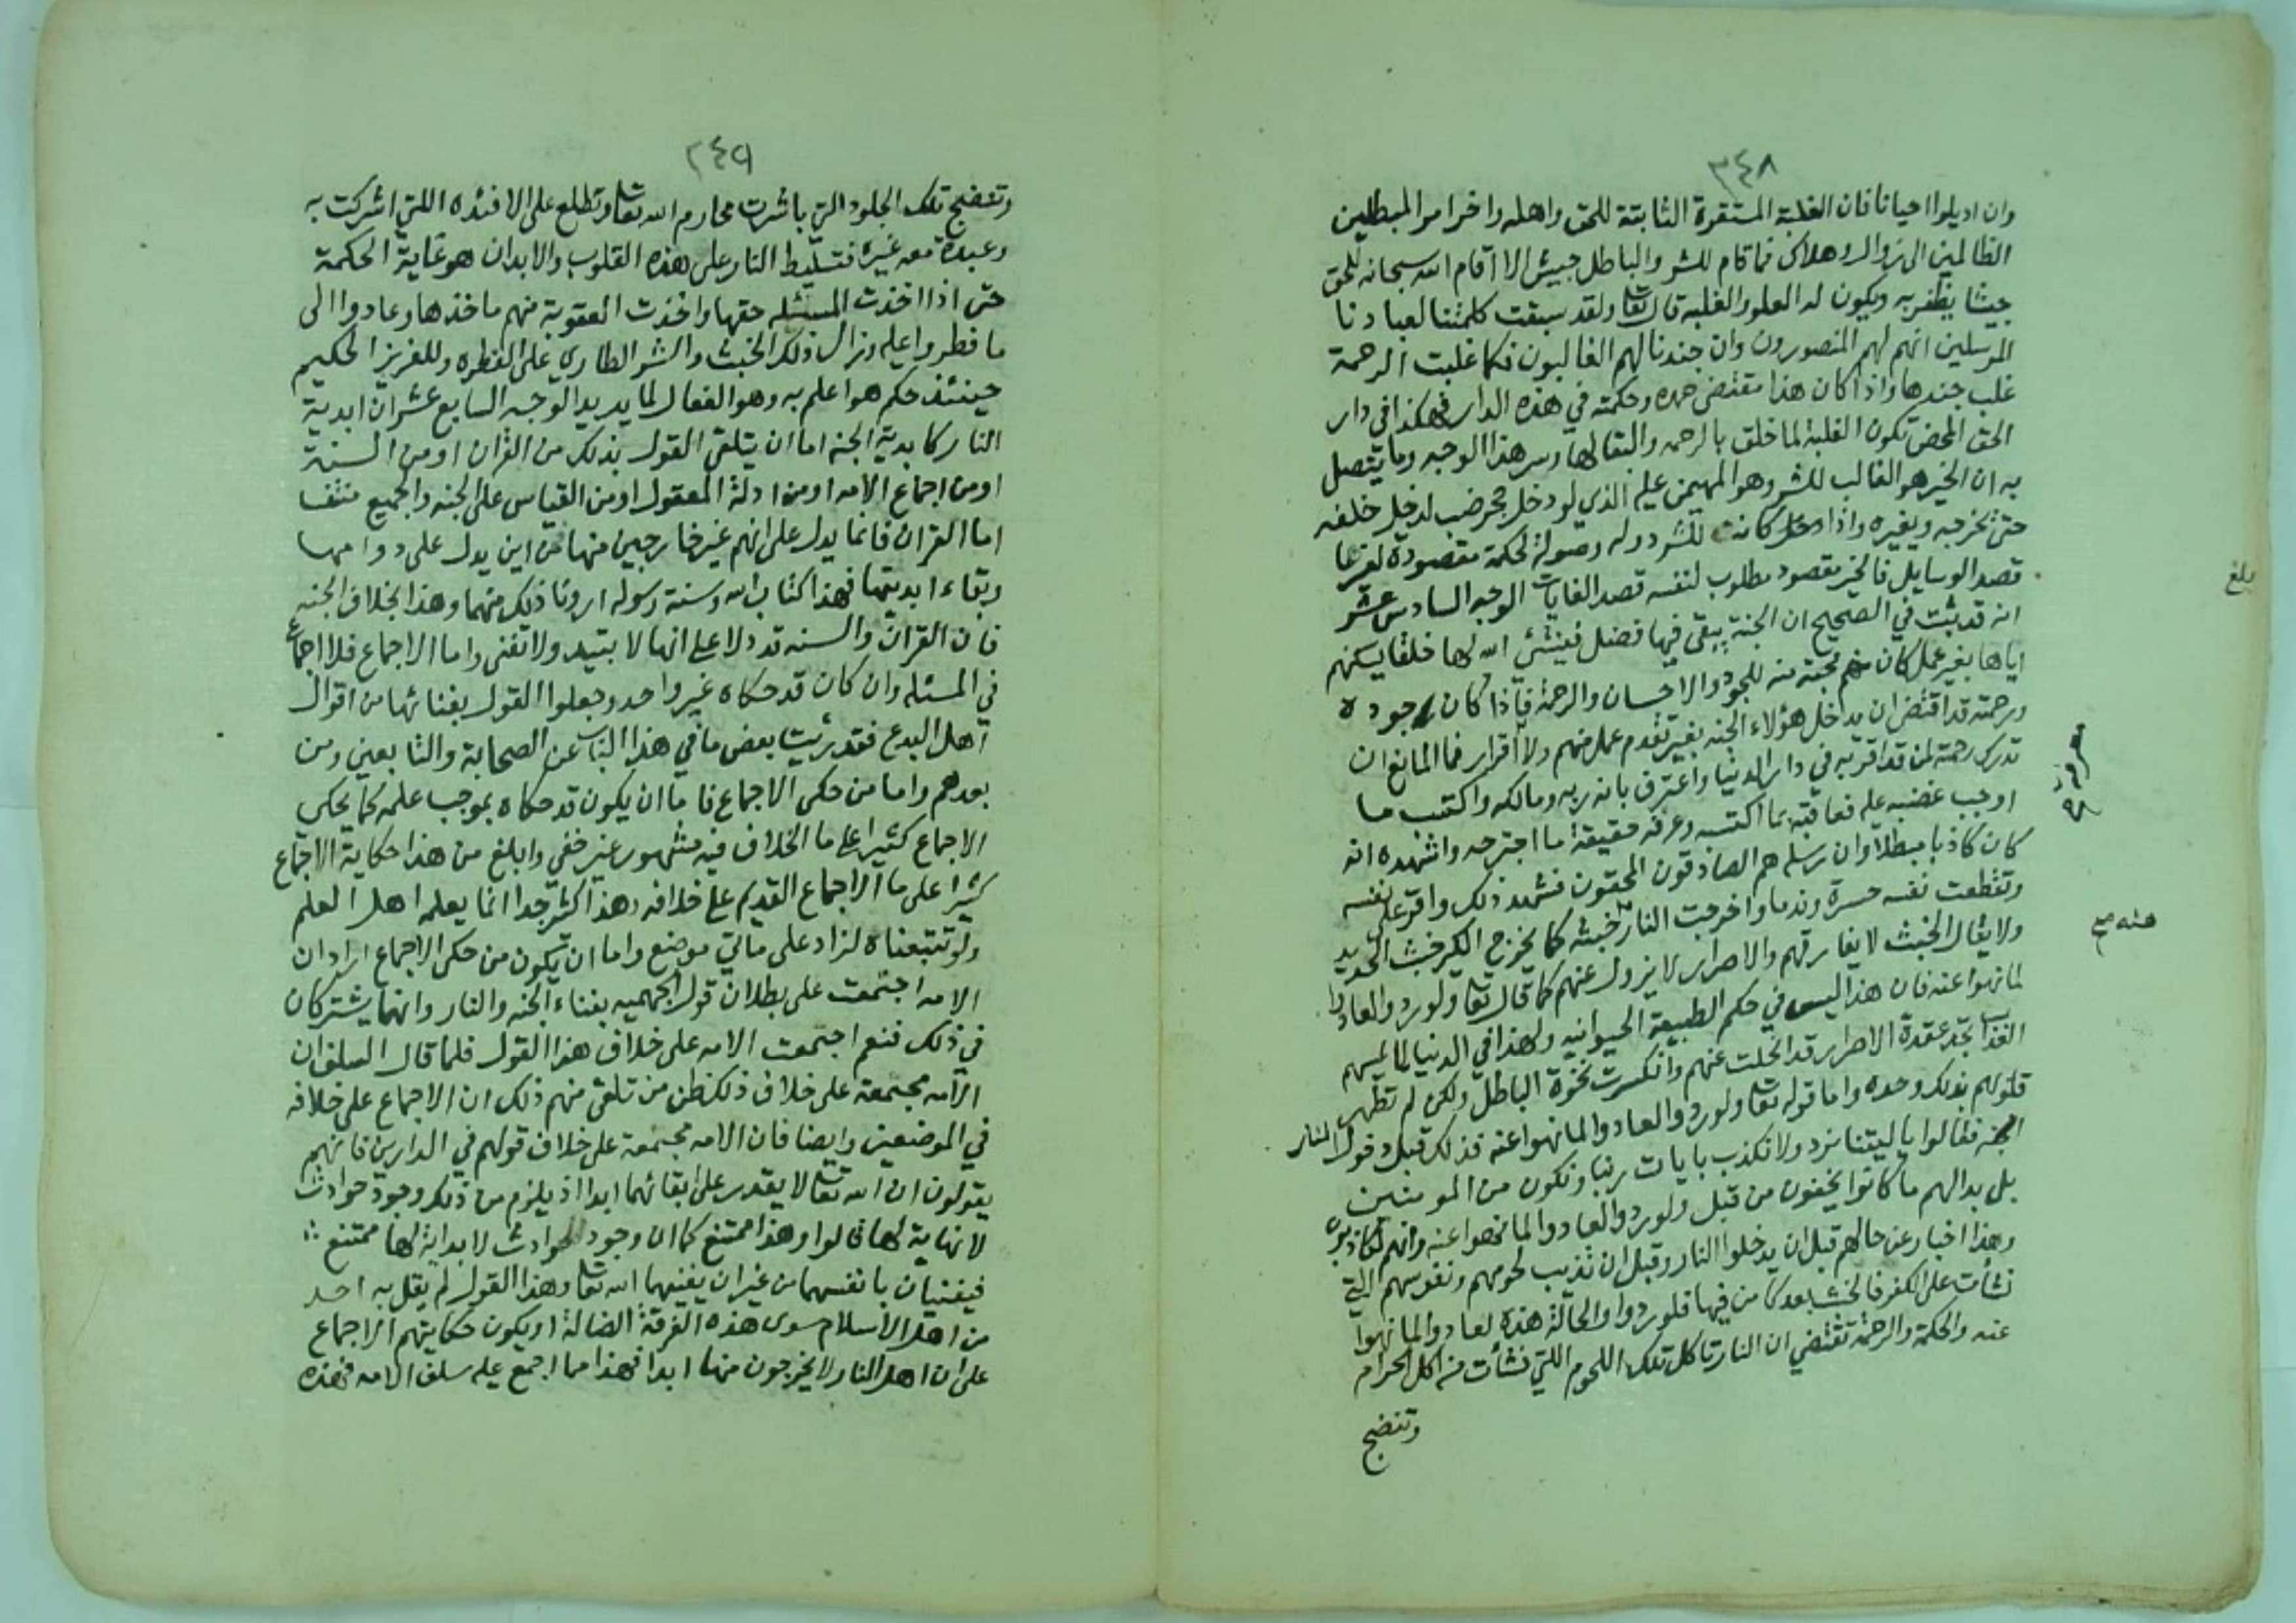 ٣٤٨
وان اديلوا احيانا فان الغلبة المستقرة الثابتة للحق واهله واخر امر المبطلين
الظالمين الى زوال وهلاك فما قام للشر والباطل جيش الا اقام الله سبحانه للحق
جيشا يظفر به ويكون له العلو والغلبه قال تعا ولقد سبقت كلمتنا لعبادنا
المرسلين انهم لهم المنصورون وان جندنا لهم الغالبون فكما غلبت الرحمة
غلب جندها واذا كان هذا مقتضى حمده وحكمته في هذه الدار فهكذا في دار
الحق المحض تكون الغلبة لما خلق بالرحمه والبقا لها وسر هذا الوجه وما يتصل
به ان الخير هو الغالب للشر وهو المهيمن عليه الذي لو دخل جحر ضب لدخل خلفه
حتى يخرجه ويغيره واذا كانت للشر دوله وصولة لحكمة مقصودة لغيرها
قصد الوسايل فالخير مقصود مطلوب لنفسه قصد الغايات الوجه السادس عشر
انه قد ثبت في الصحيح ان الجنة يبقى فيها فضل فينشئ الله لها خلقا يسكنهم
اياها بغير عمل كان منهم محبة منه للجود والاحسان والرحمة فاذا كان جوده
ورحمته قد اقتضى ان يدخل هؤلاء الجنه بغير تقدم عمل منهم ولا اقرار فما المانع ان
تدرك رحمته لمن قد اقر به في دار الدنيا واعترف بانه ربه ومالكه واكتسب ما
اوجب غضبه عليه فعاقبه بما اكتسبه وعرفه حقيقة ما اجترحه واشهده انه
كان كاذبا مبطلا وان رسله هم الصادقون المحقون فشهد ذلك واقر على نفسه
وتقطعت نفسه حسرة وندما واخرجت النار خبثه كما يخرج الكير خبث الحديد
ولا يقال الخبث لا يفارقهم والاصرار لا يزول عنهم كما قال تعا ولو ردوا لعادوا
لما نهوا عنه فان هذا ليس في حكم الطبيعة الحيوانيه ولهذا في الدنيا لما يمسهم
العذاب تجد عقدة الاصرار قد انحلت عنهم وانكسرت نخوة الباطل ولكن لم تطهر
قلوبهم بذلك وحده واما قوله تعا ولو ردوا لعادوا لما نهوا عنه فذلك قبل دخول النار
فقالوا ياليتنا نرد ولا نكذب بايات ربنا ونكون من المومنين
بل بدا لهم ما كانوا يخفون من قبل ولو ردوا لعادوا لما نهوا عنه وانهم لكاذبون
وهذا اخبار عن حالهم قبل ان يدخلوا النار وقبل ان تذيب لحومهم ونفوسهم التي
نشأت على الكفر فالخبث بعد كامن فيها فلو ردوا والحالة هذه لعادوا لما نهوا
عنه والحكمة والرحمة تقتضي ان النار تاكل تلك اللحوم اللتي نشأت من اكل الحرام
وتنضج
بلغ
٣٤٩
وتنضج تلك الجلود التي باشرت محارم الله تعا وتطلع على الافئده اللتي اشركت به
وعبدت معه غيره فتسليط النار على هذه القلوب والابدان هو غاية الحكمة
حتى اذا اخذت المسئله حقها واخذت العقوبة منهم ماخذها وعادوا الى
ما فطروا عليه وزال ذلك الخبث والشر الطاري على الفطره وللعزيز الحكيم
حينئذ حكم هو اعلم به وهو الفعال لما يريد الوجه السابع عشر ان ابدية
النار كابدية الجنه اما ان يتلقى القول بذلك من القران او من السنة
او من اجماع الامه او من ادلة المعقول او من القياس على الجنه والجميع منتف
اما القران فانما يدل على انهم غير خارجين منها فمن اين يدل على دوامها
وبقاء ابديتها فهذا كتاب الله وسنة رسوله ارونا ذلك منهما وهذا بخلاف الجنه
فان القران والسنه قد دلا على انها لا تبيد ولا تفنى واما الاجماع فلا اجماع
في المسئله وان كان قد حكاه غير واحد وجعلوا القول بفنائها من اقوال
اهل البدع فقد رئيت بعض ما في هذا الباب عن الصحابة والتابعين ومن
بعدهم واما من حكى الاجماع فاما ان يكون قد حكاه بموجب علمه كما يحكى
الاجماع كثيرا على ما الخلاف فيه مشهور غير خفي وابلغ من هذا حكاية الاجماع
كثيرا على ما الاجماع القديم على خلافه وهذا كثير جدا انما يعلمه اهل العلم
ولو تتبعناه لزاد على مائتي موضع واما ان يكون من حكى الاجماع اراد ان
الامه اجتمعت على بطلان قول الجهميه بفناء الجنه والنار وانهما يشتركان
في ذلك فنعم اجتمعت الامه على خلاف هذا القول فلما قال السلف ان
الامه مجتمعة على خلاف ذلك ظن من تلقى منهم ذلك ان الاجماع على خلافه
في الموضعين وايضا فان الامه مجتمعة على خلاف قولهم في الدارين فانهم
يقولون ان الله تعا لا يقدر على ابقائهما ابدا اذ يلزم من ذلك وجود حوادث
لا نهاية لها قالوا وهذا ممتنع كما ان وجود الحوادث لا بداية لها ممتنع
فيفنيان بانفسهما من غير ان يفنيهما الله تعا وهذا القول لم يقل به احد
من اهل الاسلام سوى هذه الفرقة الضالة او يكون حكايتهم الاجماع
على ان اهل النار لا يخرجون منها ابدا فهذا مما اجمع عليه سلف الامه فهذه